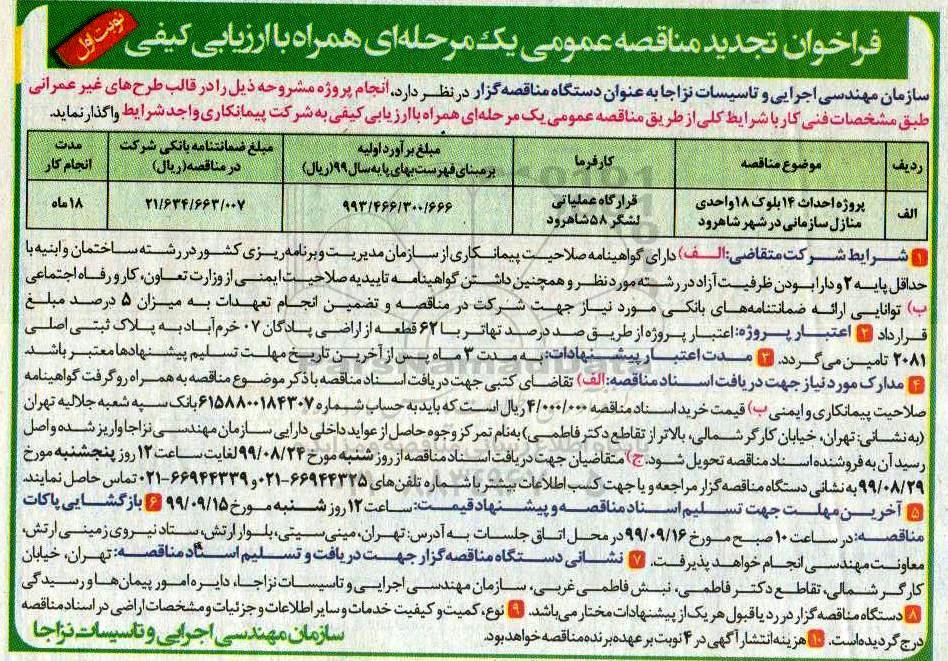 فراخوان تجدید مناقصه عمومی یک مرحله‌ای همراه با ارزیابی کیفی
نوبت اول
سازمان مهندسی اجرایی و تاسیسات نزاجا به عنوان دستگاه مناقصه گزار در نظر دارد، انجام پروژه مشروحه ذیل را در قالب طرح‌های غیر عمرانی
طبق مشخصات فنی کار با شرایط کلی از طریق مناقصه عمومی یک مرحله‌ای همراه با ارزیابی کیفی به شرکت پیمانکاری واجد شرایط واگذار نماید.
ردیف موضوع مناقصه کارفرما مبلغ برآورد اولیه بر مبنای فهرست بهای پایه سال ۹۹ (ریال) مبلغ ضمانتنامه بانکی شرکت در مناقصه (ریال) مدت انجام کار
الف پروژه احداث ۱۴ بلوک ۱۸ واحدی منازل سازمانی در شهر شاهرود قرارگاه عملیاتی لشگر ۵۸ شاهرود ۹۹۳/۴۶۶/۳۰۰/۶۶۶ ۲۱/۶۳۴/۶۶۳/۰۰۷ ۱۸ ماه
۱ شرایط شرکت متقاضی: الف) دارای گواهینامه صلاحیت پیمانکاری از سازمان مدیریت و برنامه ریزی کشور در رشته ساختمان و ابنیه با
حداقل پایه ۲ و دارا بودن ظرفیت آزاد در رشته مورد نظر و همچنین داشتن گواهینامه تاییدیه صلاحیت ایمنی از وزارت تعاون، کار و رفاه اجتماعی
ب) توانایی ارائه ضمانتنامه‌های بانکی مورد نیاز جهت شرکت در مناقصه و تضمین انجام تعهدات به میزان ۵ درصد مبلغ
قرارداد ۲ اعتبار پروژه: اعتبار پروژه از طریق صد درصد تهاتر با ۶۲ قطعه از اراضی پادگان ۰۷ خرم آباد به پلاک ثبتی اصلی
۲۰۸۱ تامین می گردد. ۳ مدت اعتبار پیشنهادات: به مدت ۳ ماه پس از آخرین تاریخ مهلت تسلیم پیشنهادها معتبر باشد.
۴ مدارک مورد نیاز جهت دریافت اسناد مناقصه: الف) تقاضای کتبی جهت دریافت اسناد مناقصه با ذکر موضوع مناقصه به همراه رو گرفت گواهینامه
صلاحیت پیمانکاری و ایمنی ب) قیمت خرید اسناد مناقصه ۴/۰۰۰/۰۰۰ ریال است که باید به حساب شماره ۶۱۵۸۸۰۰۱۸۴۳۰۷ بانک سپه شعبه جلالیه تهران
(به نشانی: تهران، خیابان کارگر شمالی، بالاتر از تقاطع دکتر فاطمی) به نام تمرکز وجوه حاصل از عواید داخلی دارایی سازمان مهندسی نزاجا واریز شده و اصل
رسید آن به فروشنده اسناد مناقصه تحویل شود. ج) متقاضیان جهت دریافت اسناد مناقصه از روز شنبه مورخ ۹۹/۰۸/۲۴ لغایت ساعت ۱۲ روز پنجشنبه مورخ
۹۹/۰۸/۲۹ به نشانی دستگاه مناقصه گزار مراجعه و یا جهت کسب اطلاعات بیشتر با شماره تلفن های ۶۶۹۴۴۳۲۵-۰۲۱ و ۶۶۹۴۴۳۳۹-۰۲۱ تماس حاصل نمایند.
۵ آخرین مهلت جهت تسلیم اسناد مناقصه و پیشنهاد قیمت: ساعت ۱۲ روز شنبه مورخ ۹۹/۰۹/۱۵ ۶ بازگشایی پاکات
مناقصه: در ساعت ۱۰ صبح مورخ ۹۹/۰۹/۱۶ در محل اتاق جلسات به آدرس: تهران، مینی سیتی، بلوار ارتش، ستاد نیروی زمینی ارتش،
معاونت مهندسی انجام خواهد پذیرفت. ۷ نشانی دستگاه مناقصه گزار جهت دریافت و تسلیم اسناد مناقصه: تهران، خیابان
کارگر شمالی، تقاطع دکتر فاطمی، نبش فاطمی غربی، سازمان مهندسی اجرایی و تاسیسات نزاجا، دایره امور پیمان‌ها و رسیدگی
۸ دستگاه مناقصه گزار در رد یا قبول هر یک از پیشنهادات مختار می باشد. ۹ نوع، کمیت و کیفیت خدمات و سایر اطلاعات و جزئیات و مشخصات اراضی در اسناد مناقصه
درج گردیده است. ۱۰ هزینه انتشار آگهی در ۴ نوبت بر عهده برنده مناقصه خواهد بود.
سازمان مهندسی اجرایی و تاسیسات نزاجا